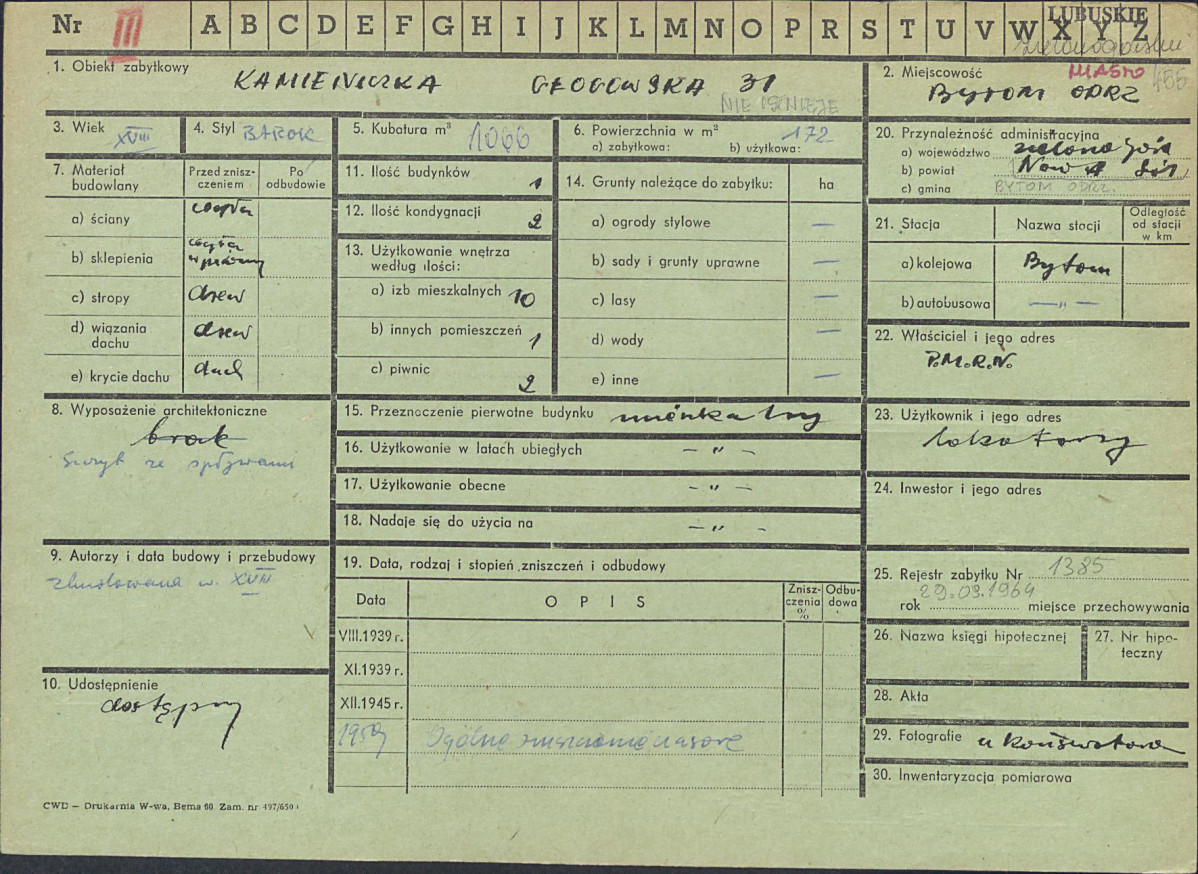 Nr III A B C D E F G H I J K L M N O P R S T U V W X Y Z
LUBUSKIE
zielonogórskie
1. Obiekt zabytkowy KAMIENICZKA GŁOGOWSKA 31
NIE ISTNIEJE
2. Miejscowość MIASTO 455
BYTOM ODRZ
3. Wiek XVIII
4. Styl BAROK
5. Kubatura m³ 1066
6. Powierzchnia w m² 172
a) zabytkowa: b) użytkowa:
20. Przynależność administracyjna
a) województwo zielona Góra
b) powiat Nowa Sól
c) gmina BYTOM ODRZ.
7. Materiał budowlany
Przed zniszczeniem
Po odbudowie
a) ściany cegła
b) sklepienia cegła
c) stropy drew
d) wiązania dachu drew
e) krycie dachu dach
11. Ilość budynków 1
12. Ilość kondygnacji 2
13. Użytkowanie wnętrza według ilości:
a) izb mieszkalnych 10
b) innych pomieszczeń 1
c) piwnic 2
14. Grunty należące do zabytku: ha
a) ogrody stylowe —
b) sady i grunty uprawne —
c) lasy —
d) wody —
e) inne —
21. Stacja
Nazwa stacji
Odległość od stacji w km
a) kolejowa Bytom
b) autobusowa —„—
22. Właściciel i jego adres
P.M.R.N.
8. Wyposażenie architektoniczne
brak
Szczyt ze spływami
15. Przeznaczenie pierwotne budynku mieszkalny
16. Użytkowanie w latach ubiegłych — „ —
17. Użytkowanie obecne — „ —
18. Nadaje się do użycia na — „ —
23. Użytkownik i jego adres
lokatorzy
24. Inwestor i jego adres
9. Autorzy i data budowy i przebudowy
zbudowana w. XVIII
19. Data, rodzaj i stopień zniszczeń i odbudowy
Data
OPIS
Zniszczenia %
Odbudowa
VIII.1939 r.
XI.1939 r.
XII.1945 r.
1959 Ogólne zniszczenie
25. Rejestr zabytku Nr 1385
29.03.1964
rok miejsce przechowywania
26. Nazwa księgi hipotecznej
27. Nr hipoteczny
10. Udostępnienie
dostępny
28. Akta
29. Fotografie u konserwatora
30. Inwentaryzacja pomiarowa
CWD — Drukarnia W-wa, Bema 60 Zam. nr 497/650